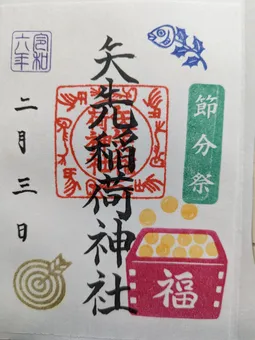 節分祭
矢先稲荷神社
福
令和
六年
二月三日